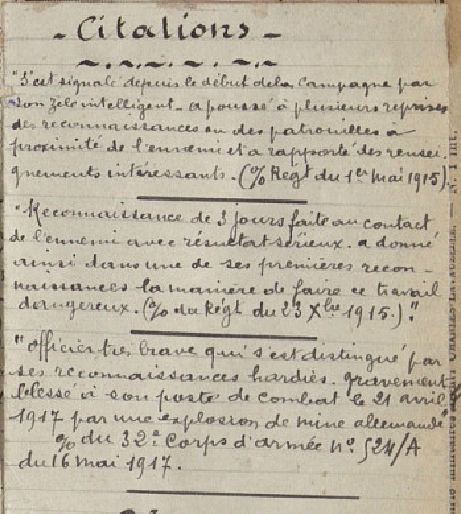 - Citations -
"S'est signalé depuis le début de la Campagne par
son zèle intelligent - a poussé à plusieurs reprises
des reconnaissances ou des patrouilles à
proximité de l'ennemi et a rapporté des rensei-
gnements intéressants. (% Régt du 1er Mai 1915).
"Reconnaissance de 3 jours faite au contact
de l'ennemi avec résultat sérieux. a donné
ainsi dans une de ses premières recon-
naissances la manière de faire ce travail
dangereux. (% du Régt du 23 Xbre 1915.)"
"Officier très brave qui s'est distingué par
ses reconnaissances hardies. Gravement
blessé à son poste de combat le 21 avril
1917 par une explosion de mine allemande"
% du 32e Corps d'armée no 524/A
du 16 mai 1917.